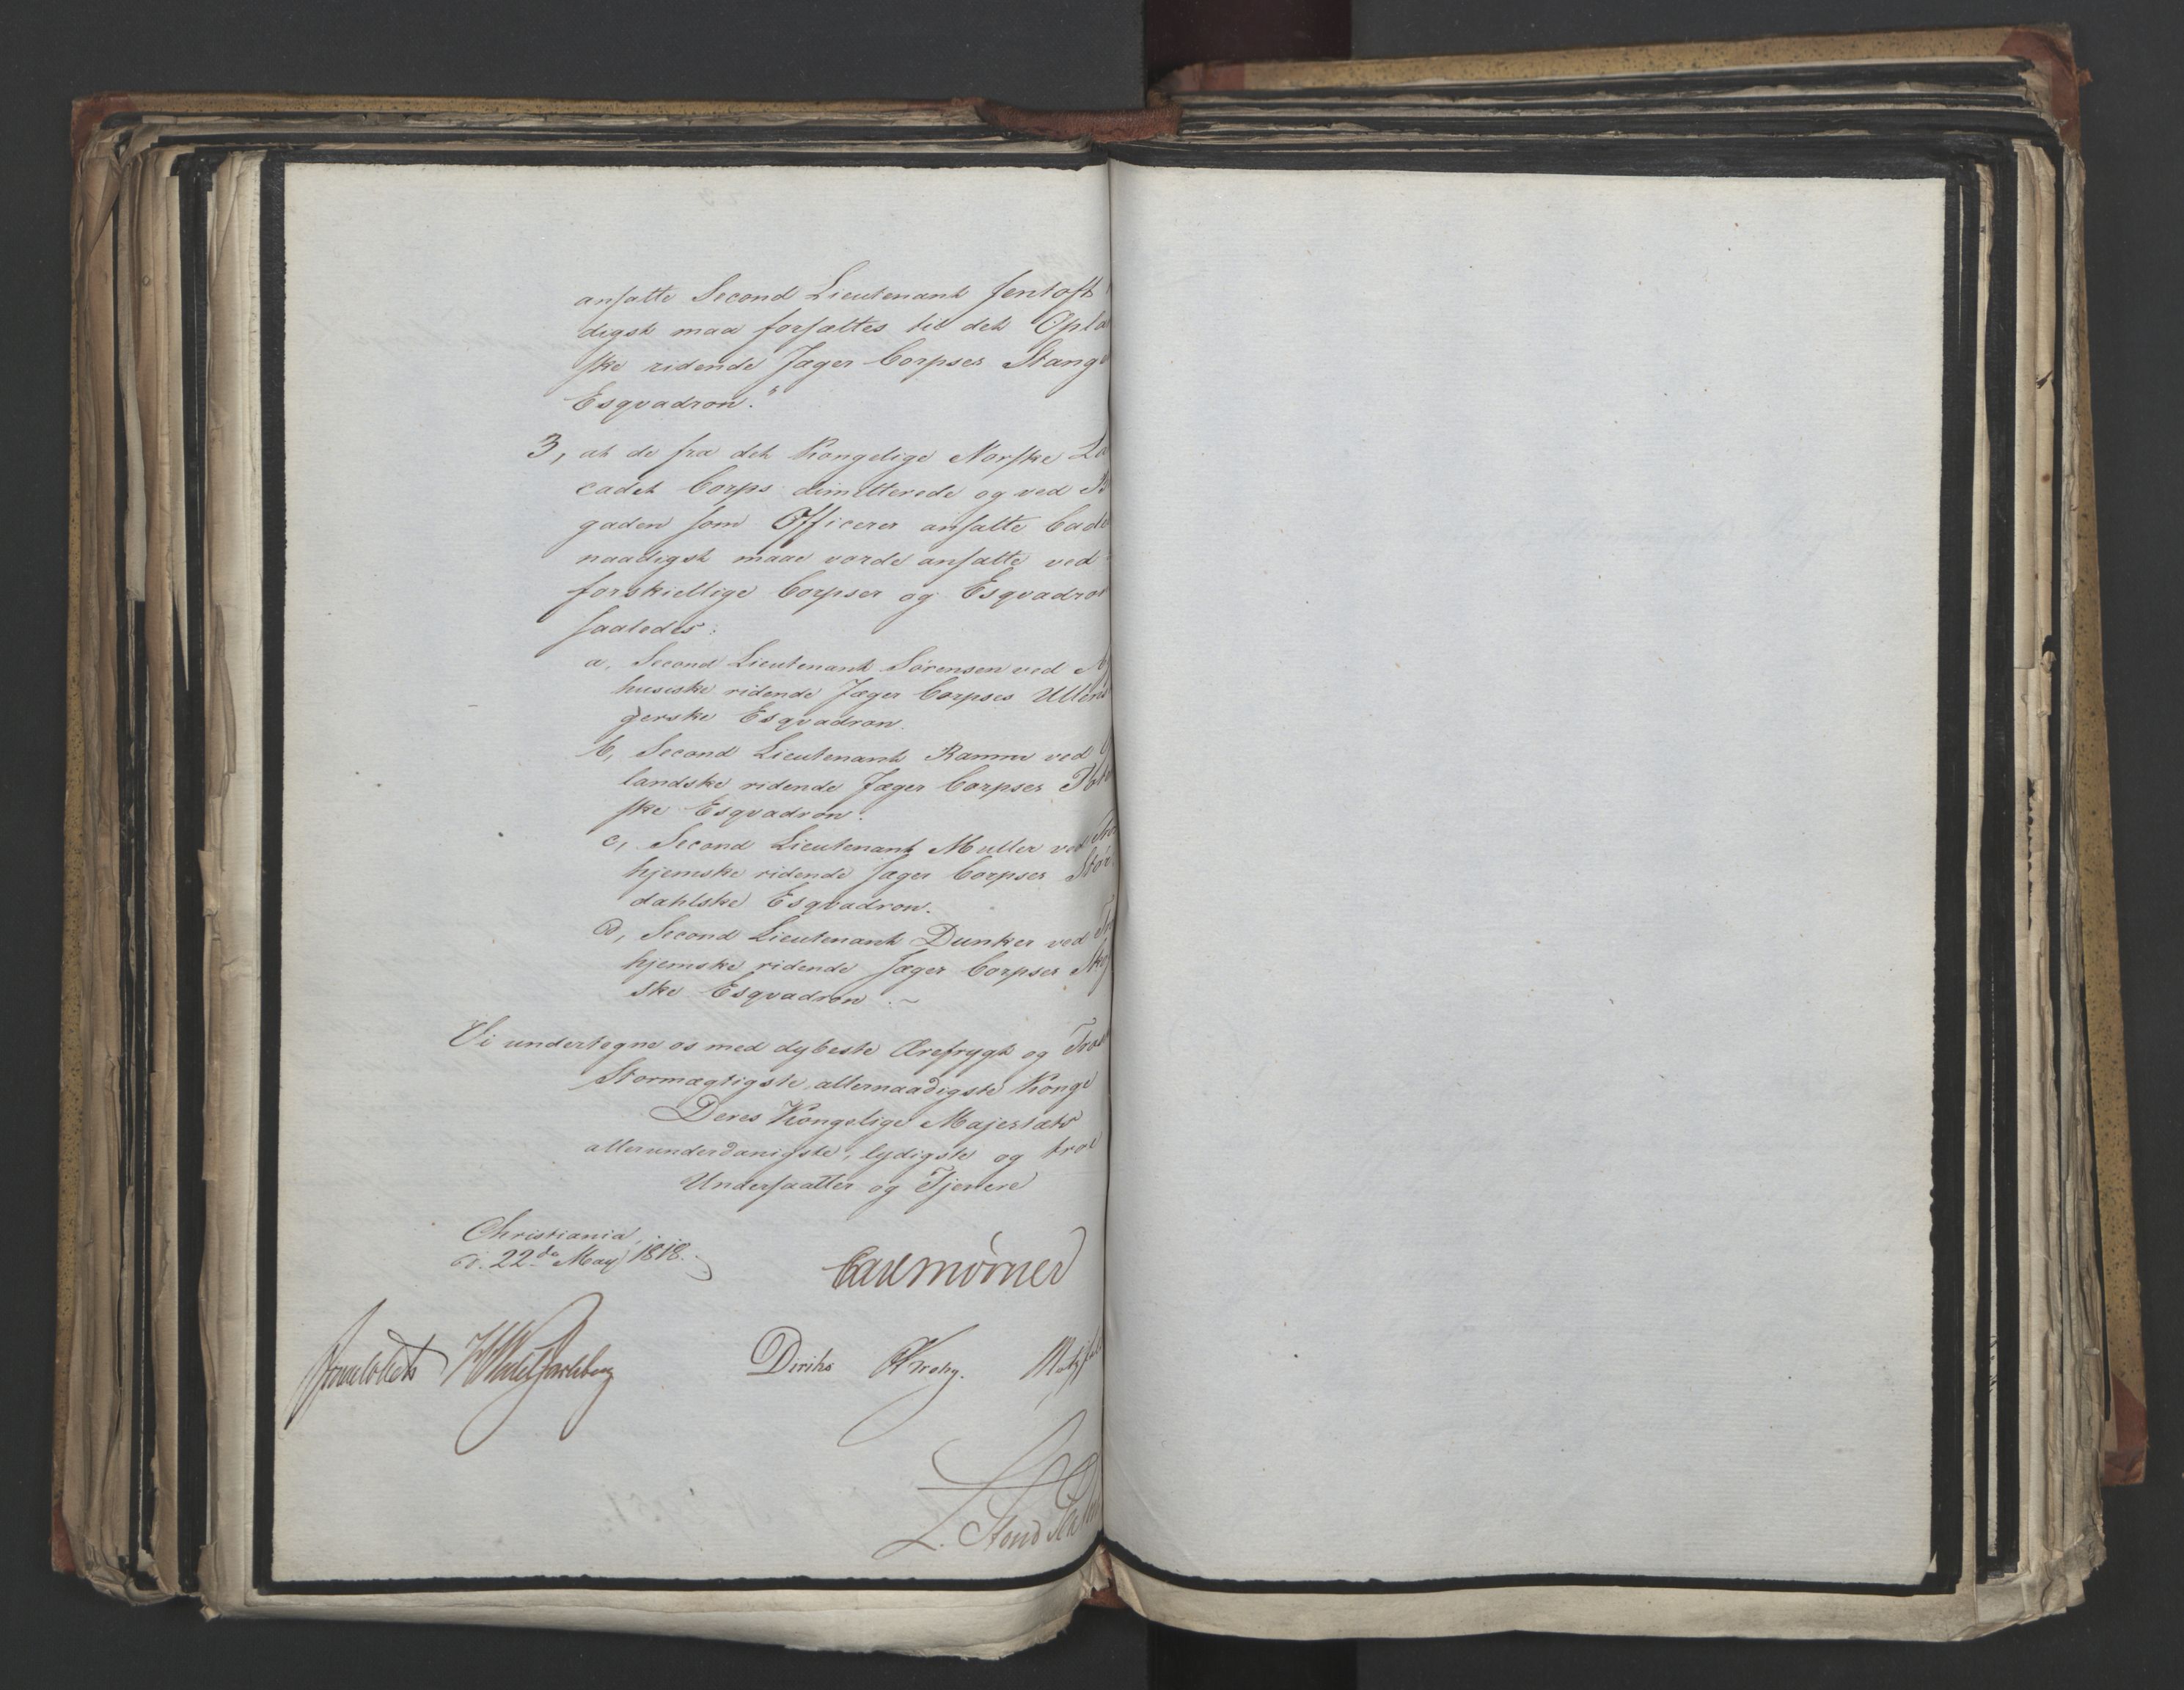 ansatte Second Lieutenant Jentoft
digst maa forsættes til det Opla
ske ridende Jæger Corpses Stang
Esqvadron."
3, at de fra det Kongelige Norske La
cadet Corps dimitterede og ved B
gaden som Officerer ansatte Cade
naadigst maae vorde ansatte ved
forskiellige Corpser og Esqvadro
saaledes:
a, Second Lieutenant Sörensen ved A
husiske ridende Jæger Corpses Ullens
gerske Esqvadron.
b, Second Lieutenant Ramm ved O
landske ridende Jæger Corpses Tot
ske Esqvadron.
c, Second Lieutenant Muller ved Tro
hjemske ridende Jæger Corpses Stör
dahlske Esqvadron.
d, Second Lieutenant Dunker ved Tr
hjemske ridende Jæger Corpses Sko
ske Esqvadron.~
Vi undertegne os med dybeste Ærefrygt og Tros
Stormægtigste, allernaadigste Konge
Deres Kongelige Majestæts
allerunderdanigste, lydigste og troe
Undersaatter og Tjenere
Christiania,
d. 22de May 1818.
Carl Mörner
Sommelhielm HWedelJarlsberg Diriks Krohg. Motzfeld
L. Stoud Platou